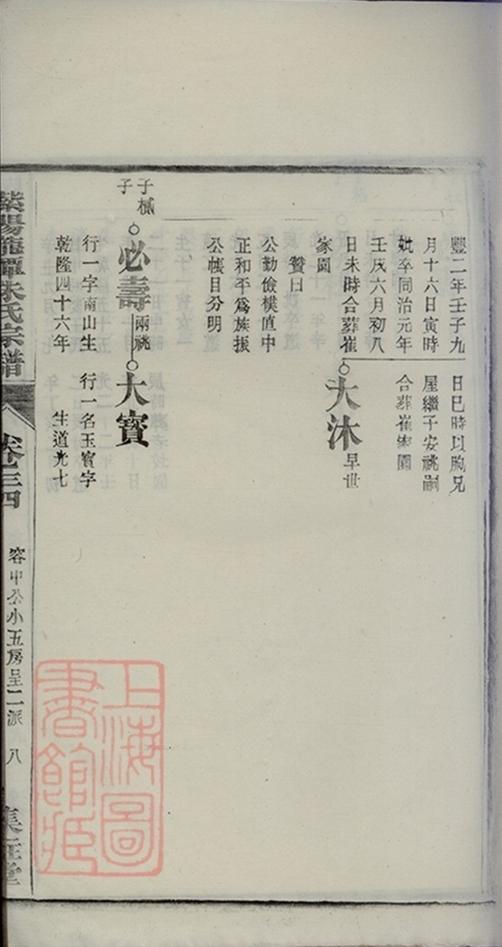 豐二年壬子九
月十六日寅時
妣卒同治元年
壬戌六月初八
日未時合葬崔
家園
贊曰
公勤儉樸直中
正和平爲族振
公帳目分明
日巳時以胸兄
屋繼子安祧嗣
合葬崔家園
大沐早世
子
子
必壽
兩祧
大寶
行一字南山生
乾隆四十六年
行一名玉寶字
生道光七
紫陽龍潭朱氏宗譜
卷三四
容中公小五房呈二派
八
集注堂
上海圖
書館藏